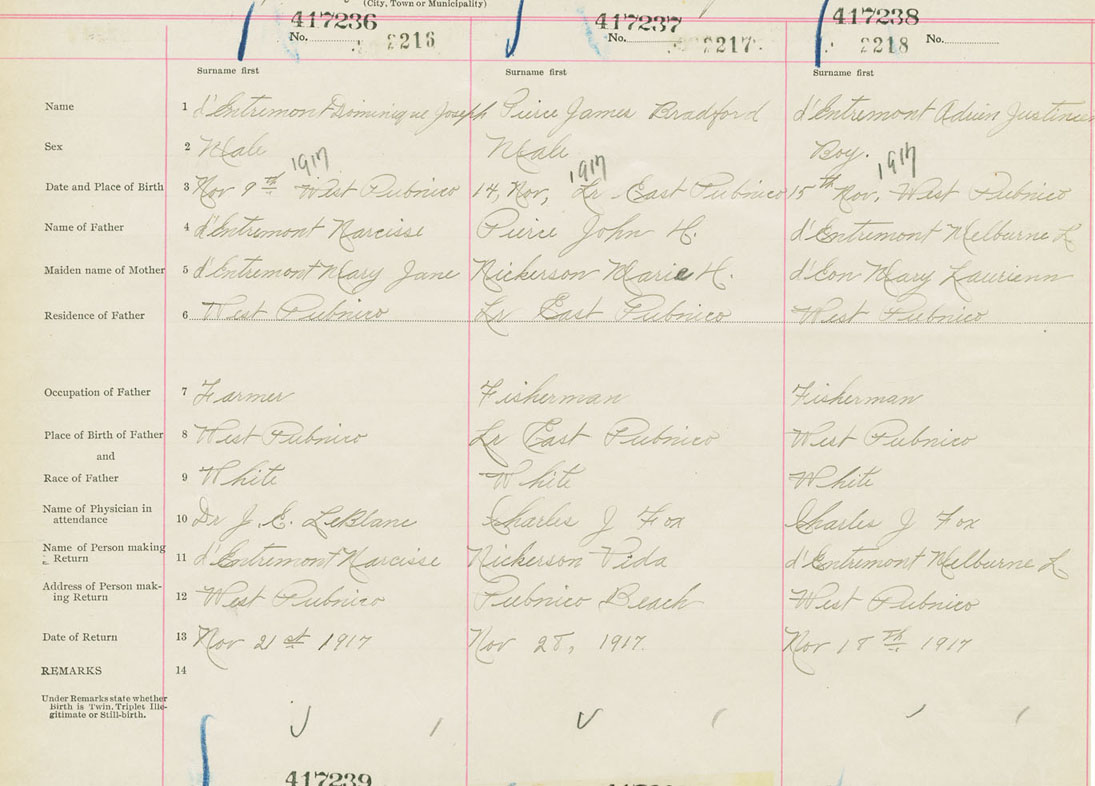 (City, Town or Municipality)
417236 417237 417238
No. 2216 No. 2217 2218 No.
Surname first Surname first Surname first
Name 1 d'Entremont Dominique Joseph Pierce James Bradford d'Entremont Adrien
Sex 2 Male Male Boy.
1917 1917 1917
Date and Place of Birth 3 Nov 9th West Pubnico 14, Nov, Lr East Pubnico 15th Nov, West Pubnico
Name of Father 4 d'Entremont Narcisse Pierce John H. d'Entremont Melburne L
Maiden name of Mother 5 d'Entremont Mary Jane Nickerson Marie H. d'Eon Mary Laurienn
Residence of Father 6 West Pubnico Lr East Pubnico West Pubnico
Occupation of Father 7 Farmer Fisherman Fisherman
Place of Birth of Father 8 West Pubnico Lr East Pubnico West Pubnico
and
Race of Father 9 White White White
Name of Physician in
attendance 10 Dr J. E. LeBlanc Charles J Fox Charles J Fox
Name of Person making
Return 11 d'Entremont Narcisse Nickerson Vida d'Entremont Melburne L
Address of Person mak-
ing Return 12 West Pubnico Pubnico Beach West Pubnico
Date of Return 13 Nov 21st 1917 Nov 28, 1917. Nov 18th 1917
REMARKS 14
Under Remarks state whether
Birth is Twin, Triplet Ille-
gitimate or Still-birth.
417239